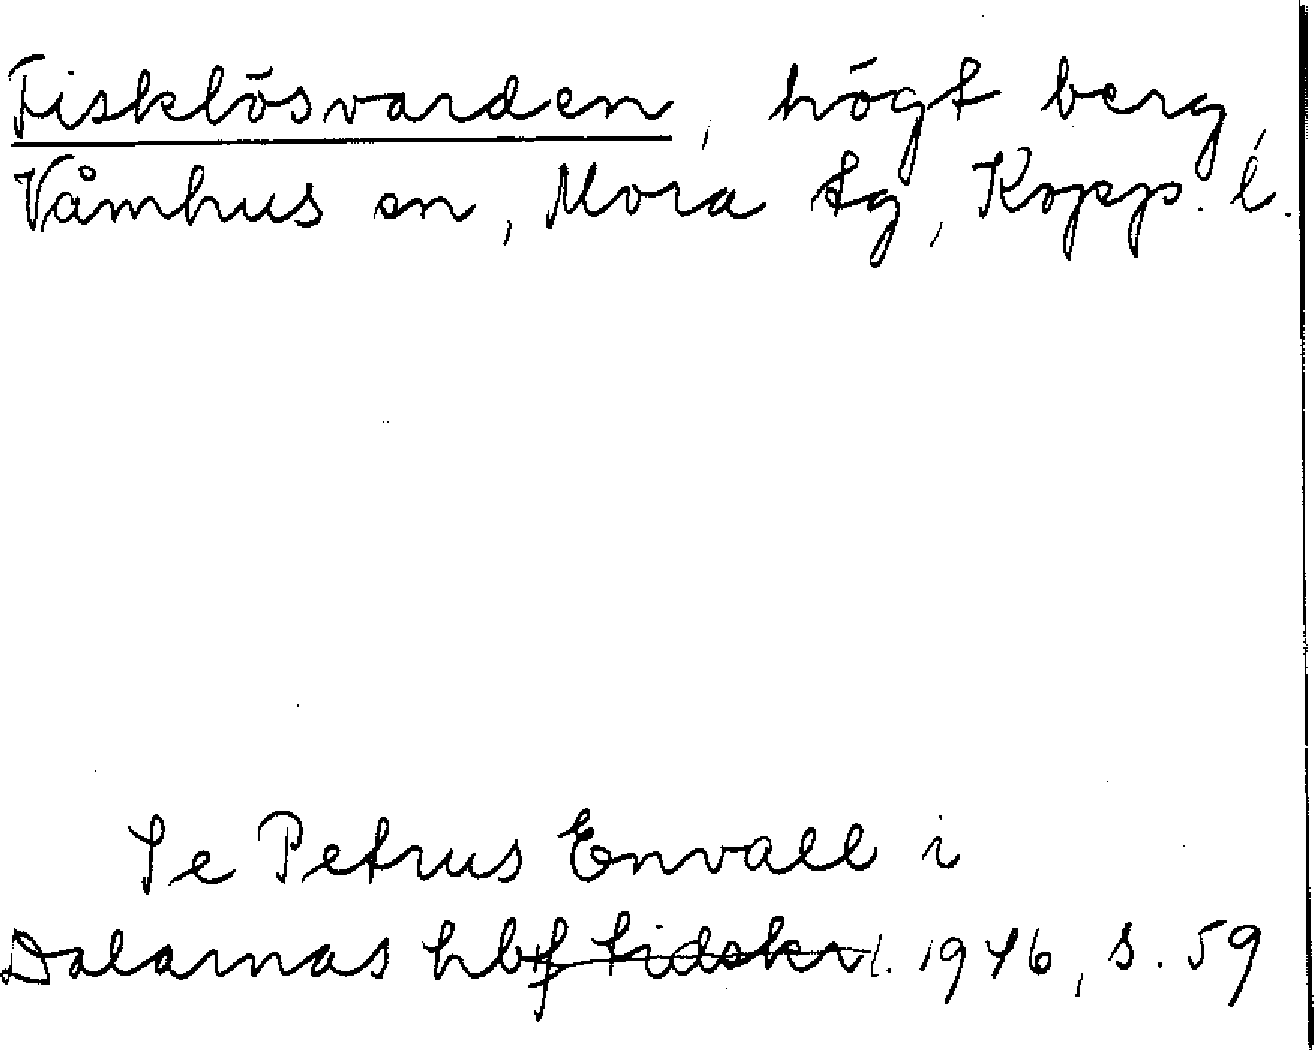 Fisklösvarden, högt berg,
Våmhus sn, Mora tg, Kopp. l.
Se Petrus Envall i
Dalarnas hbf tidskr. 1946, s. 59